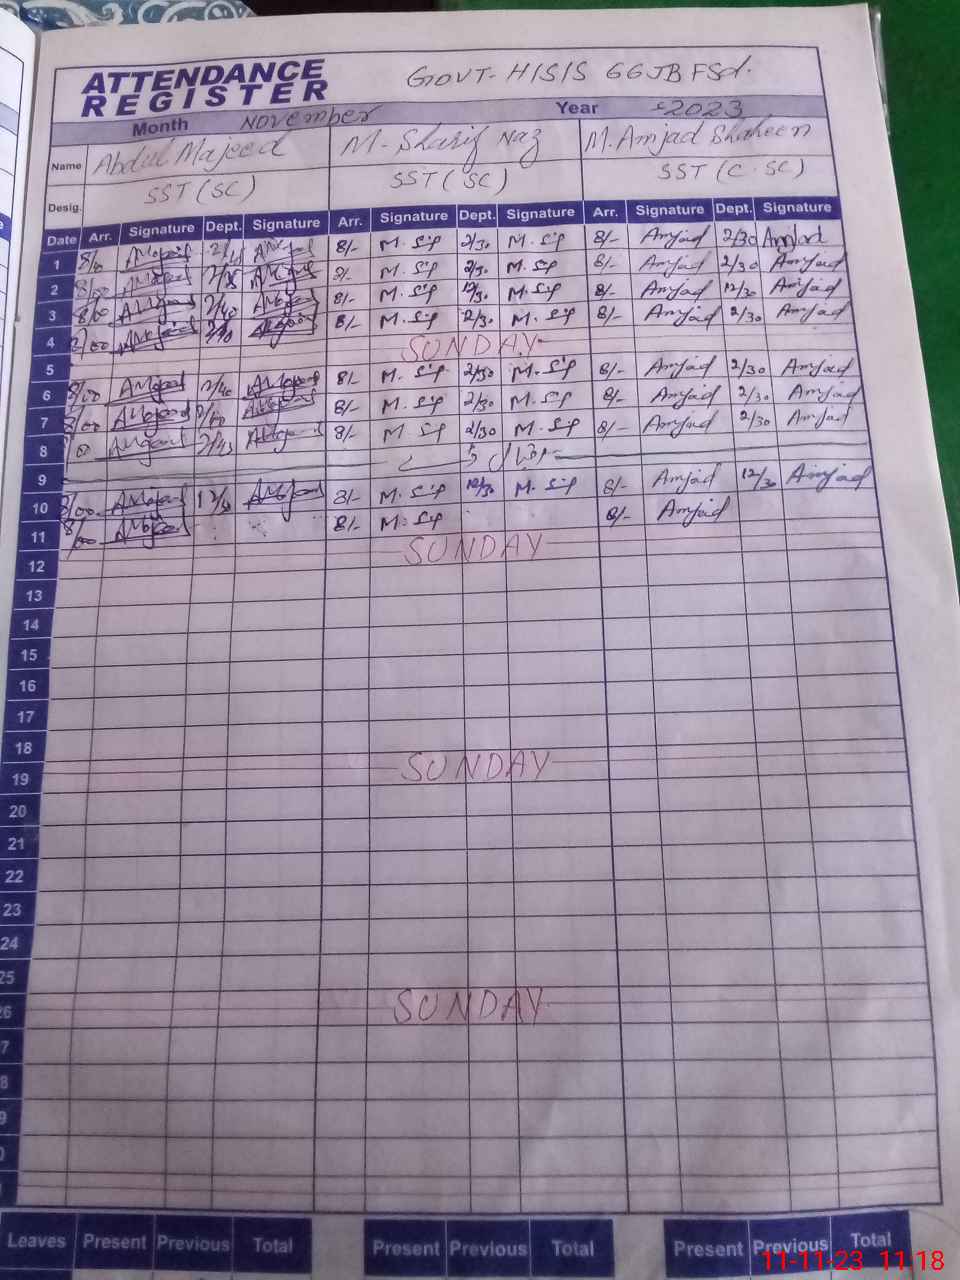 ATTENDANCE REGISTER GOVT-H/S/S 66JB FSd.
Month November Year 2023
Name Abdul Majeed M. Sharif Naz M. Amjad Shaheen
Desig. SST (SC) SST (SC) SST (C.SC)
Date Arr. Signature Dept. Signature Arr. Signature Dept. Signature Arr. Signature Dept. Signature
1 8/- M. Sif 2/30 M. Sif 8/- Amjad 2/30 Amjad
2 8/00 8/- M. Sif 2/30 M. Sif 8/- Amjad 2/30 Amjad
3 8/00 2/40 8/- M. Sif 12/30 M. Sif 8/- Amjad 12/30 Amjad
4 8/00 8/- M. Sif 2/30 M. Sif 8/- Amjad 2/30 Amjad
SUNDAY
5
6 8/00 2/40 8/- M. Sif 2/30 M. Sif 8/- Amjad 2/30 Amjad
7 8/00 8/- M. Sif 2/30 M. Sif 8/- Amjad 2/30 Amjad
8 8/- M. Sif 2/30 M. Sif 8/- Amjad 2/30 Amjad
9
10 8/00 12/30 8/- M. Sif 12/30 M. Sif 8/- Amjad 12/30 Amjad
11 8/00 8/- M. Sif 8/- Amjad
SUNDAY
12
13
14
15
16
17
18
SUNDAY
19
20
21
22
23
24
25
SUNDAY
26
7
8
9
0
Leaves Present Previous Total Present Previous Total Present Previous Total
11-11-23 11:18